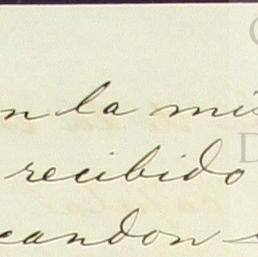 n la mis
recibido
candon